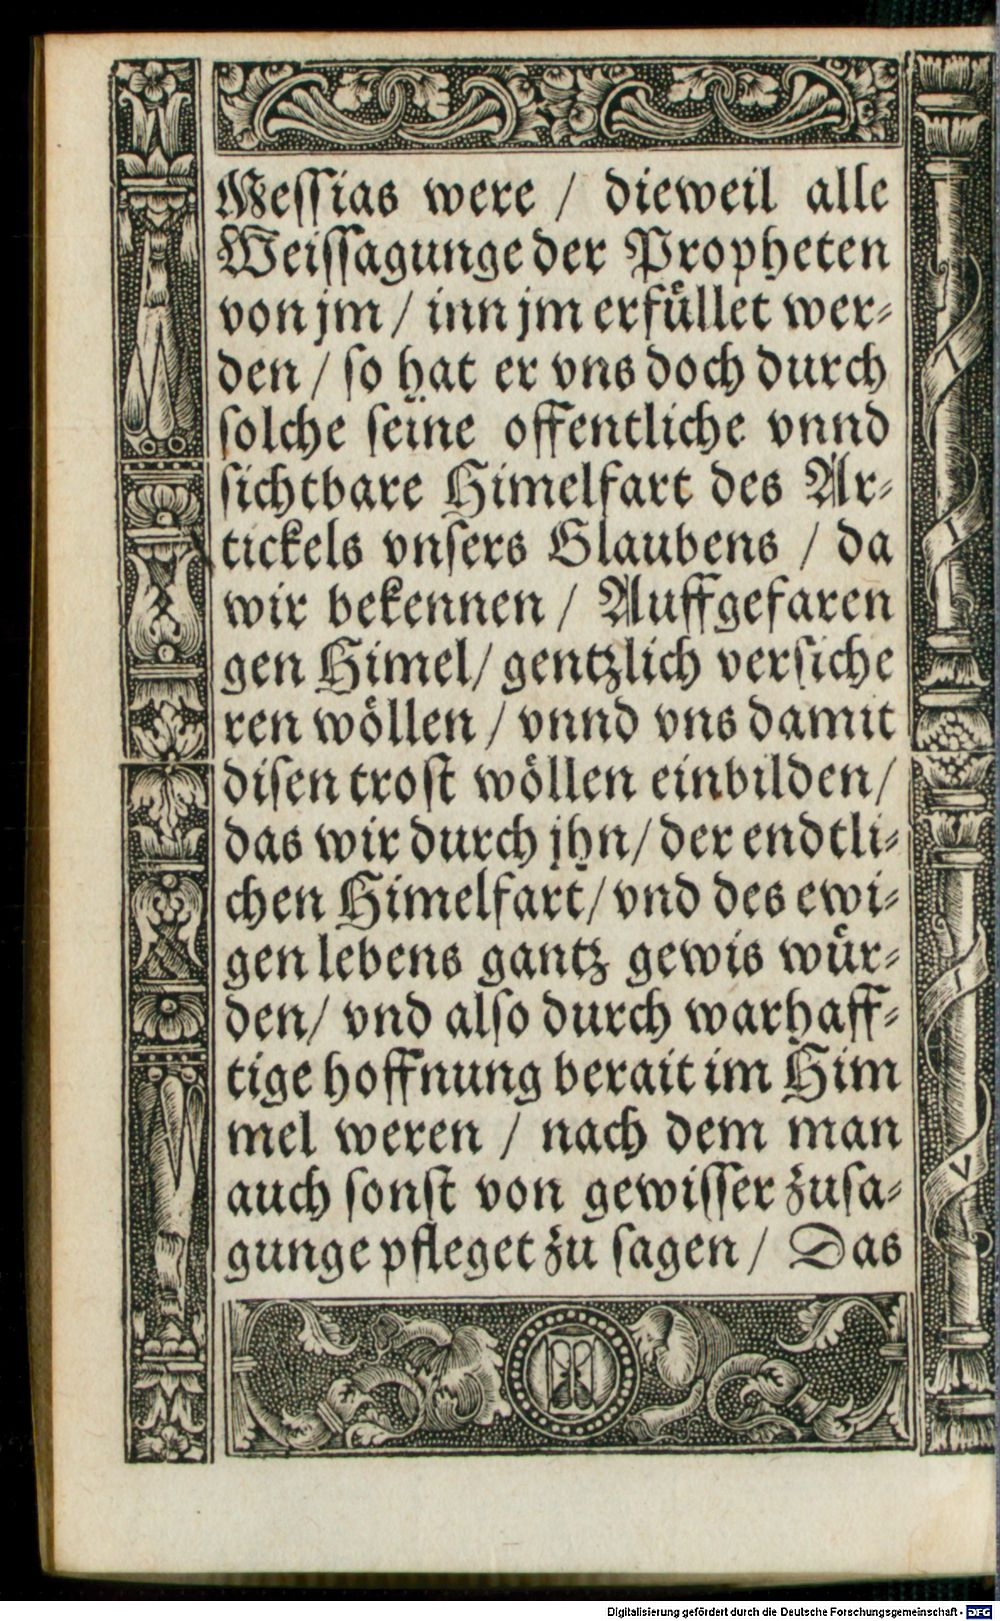 Messias were / dieweil alle
Weissagunge der Propheten
von jm / inn jm erfüllet wer⸗
den / so hat er vns doch durch
solche seine offentliche vnnd
sichtbare Himelfart des Ar⸗
tickels vnsers Glaubens / da
wir bekennen / Auffgefaren
gen Himel / gentzlich versiche
ren wöllen / vnnd vns damit
disen trost wöllen einbilden /
das wir durch jhn / der endtli⸗
chen Himelfart / vnd des ewi⸗
gen lebens gantz gewis wür⸗
den / vnd also durch warhaff⸗
tige hoffnung berait im Him
mel weren / nach dem man
auch sonst von gewisser zusa⸗
gunge pfleget zu sagen / Das
Digitalisierung gefördert durch die Deutsche Forschungsgemeinschaft - DFG